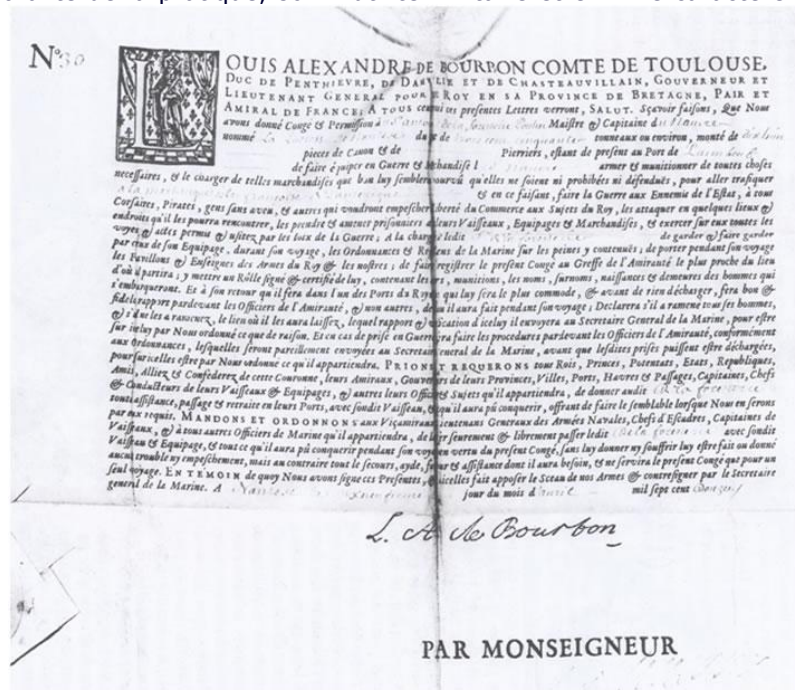 N° 30
LOUIS ALEXANDRE DE BOURBON COMTE DE TOULOUSE,
DUC DE PENTHIEVRE, DE DAMVILLE ET DE CHASTEAUVILLAIN, GOUVERNEUR ET
LIEUTENANT GENERAL POUR LE ROY EN SA PROVINCE DE BRETAGNE, PAIR ET
AMIRAL DE FRANCE: A TOUS ceux qui ces presentes Lettres verront, SALUT. Sçavoir faisons, Que Nous
avons donné Congé & Permission Maistre & Capitaine du
nommé du Port de tonneaux ou environ, monté de
pieces de Canon & de Pierriers, estant de present au Port de
de faire équiper en Guerre & Marchandise armer & munitionner de toutes choses
necessaires, & le charger de telles marchandises que bon luy semblera pourvû qu'elles ne soient ni prohibées ni défenduës, pour aller trafiquer
& en ce faisant, faire la Guerre aux Ennemis de l'Estat, à tous
Corsaires, Pirates, gens sans aveu, & autres qui voudront empescher liberté du Commerce aux Sujets du Roy, les attaquer en quelques lieux &
endroits qu'il les pourra rencontrer, les prendre & amener prisonniers leurs Vaisseaux, Equipages & Marchandises, & exercer sur eux toutes les
voyes & actes permis & usitez par les loix de la Guerre; A la charge ledit de garder & faire garder
par ceux de son Equipage, durant son voyage, les Ordonnances & Reglemens de la Marine sur les peines y contenuës; de porter pendant son voyage
les Pavillons & Enseignes des Armes du Roy & les nostres; de faire registrer le present Congé au Greffe de l'Amirauté le plus proche du lieu
d'où il partira; y mettre un Rôlle signé & certifié de luy, contenant les munitions, les noms, surnoms, naissances & demeures des hommes qui
s'embarqueront. Et à son retour qu'il fera dans l'un des Ports du Royaume qui luy sera le plus commode, & avant de rien décharger, fera bon &
fidele rapport pardevant les Officiers de l'Amirauté, & non autres, de ce qu'il aura fait pendant son voyage; Declarera s'il a ramené tous ses hommes,
& d'où les a ramenez, le lieu où il les aura laissez, lequel rapport & verification d'iceluy il envoyera au Secretaire General de la Marine, pour estre
sur iceluy par Nous ordonné ce que de raison. Et en cas de prise en Guerre fera faire les procedures pardevant les Officiers de l'Amirauté, conformément
aux Ordonnances, lesquelles seront pareillement envoyées au Secretaire General de la Marine, avant que lesdites prises puissent estre déchargées,
pour sur icelles estre par Nous ordonné ce qu'il appartiendra. PRIONS ET REQUERONS tous Rois, Princes, Potentats, Etats, Republiques,
Amis, Alliez & Confederez de cette Couronne, leurs Amiraux, Gouverneurs de leurs Provinces, Villes, Ports, Havres & Passages, Capitaines, Chefs
& Conducteurs de leurs Vaisseaux & Equipages, & autres leurs Officiers & Sujets qu'il appartiendra, de donner audit
toute assistance, passage & retraite en leurs Ports, avec sondit Vaisseau, & ce qu'il aura pû conquerir, offrant de faire le semblable lorsque Nous en serons
par eux requis. MANDONS ET ORDONNONS aux Viçamiraux, Lieutenans Generaux des Armées Navales, Chefs d'Escadres, Capitaines de
Vaisseaux, & à tous autres Officiers de Marine qu'il appartiendra, de laisser seurement & librement passer ledit avec sondit
Vaisseau & Equipage, & tout ce qu'il aura pû conquerir pendant son voyage en vertu du present Congé, sans luy donner ny souffrir luy estre fait ou donné
aucun trouble ny empeschement, mais au contraire tout le secours, ayde, faveur & assistance dont il aura besoin, & ne servira le present Congé que pour un
seul voyage. EN TEMOIN de quoy Nous avons signé ces Presentes, & icelles fait apposer le Sceau de nos Armes & contresigner par le Secretaire
general de la Marine. A jour du mois d'avril mil sept cent
L. A. de Bourbon
PAR MONSEIGNEUR